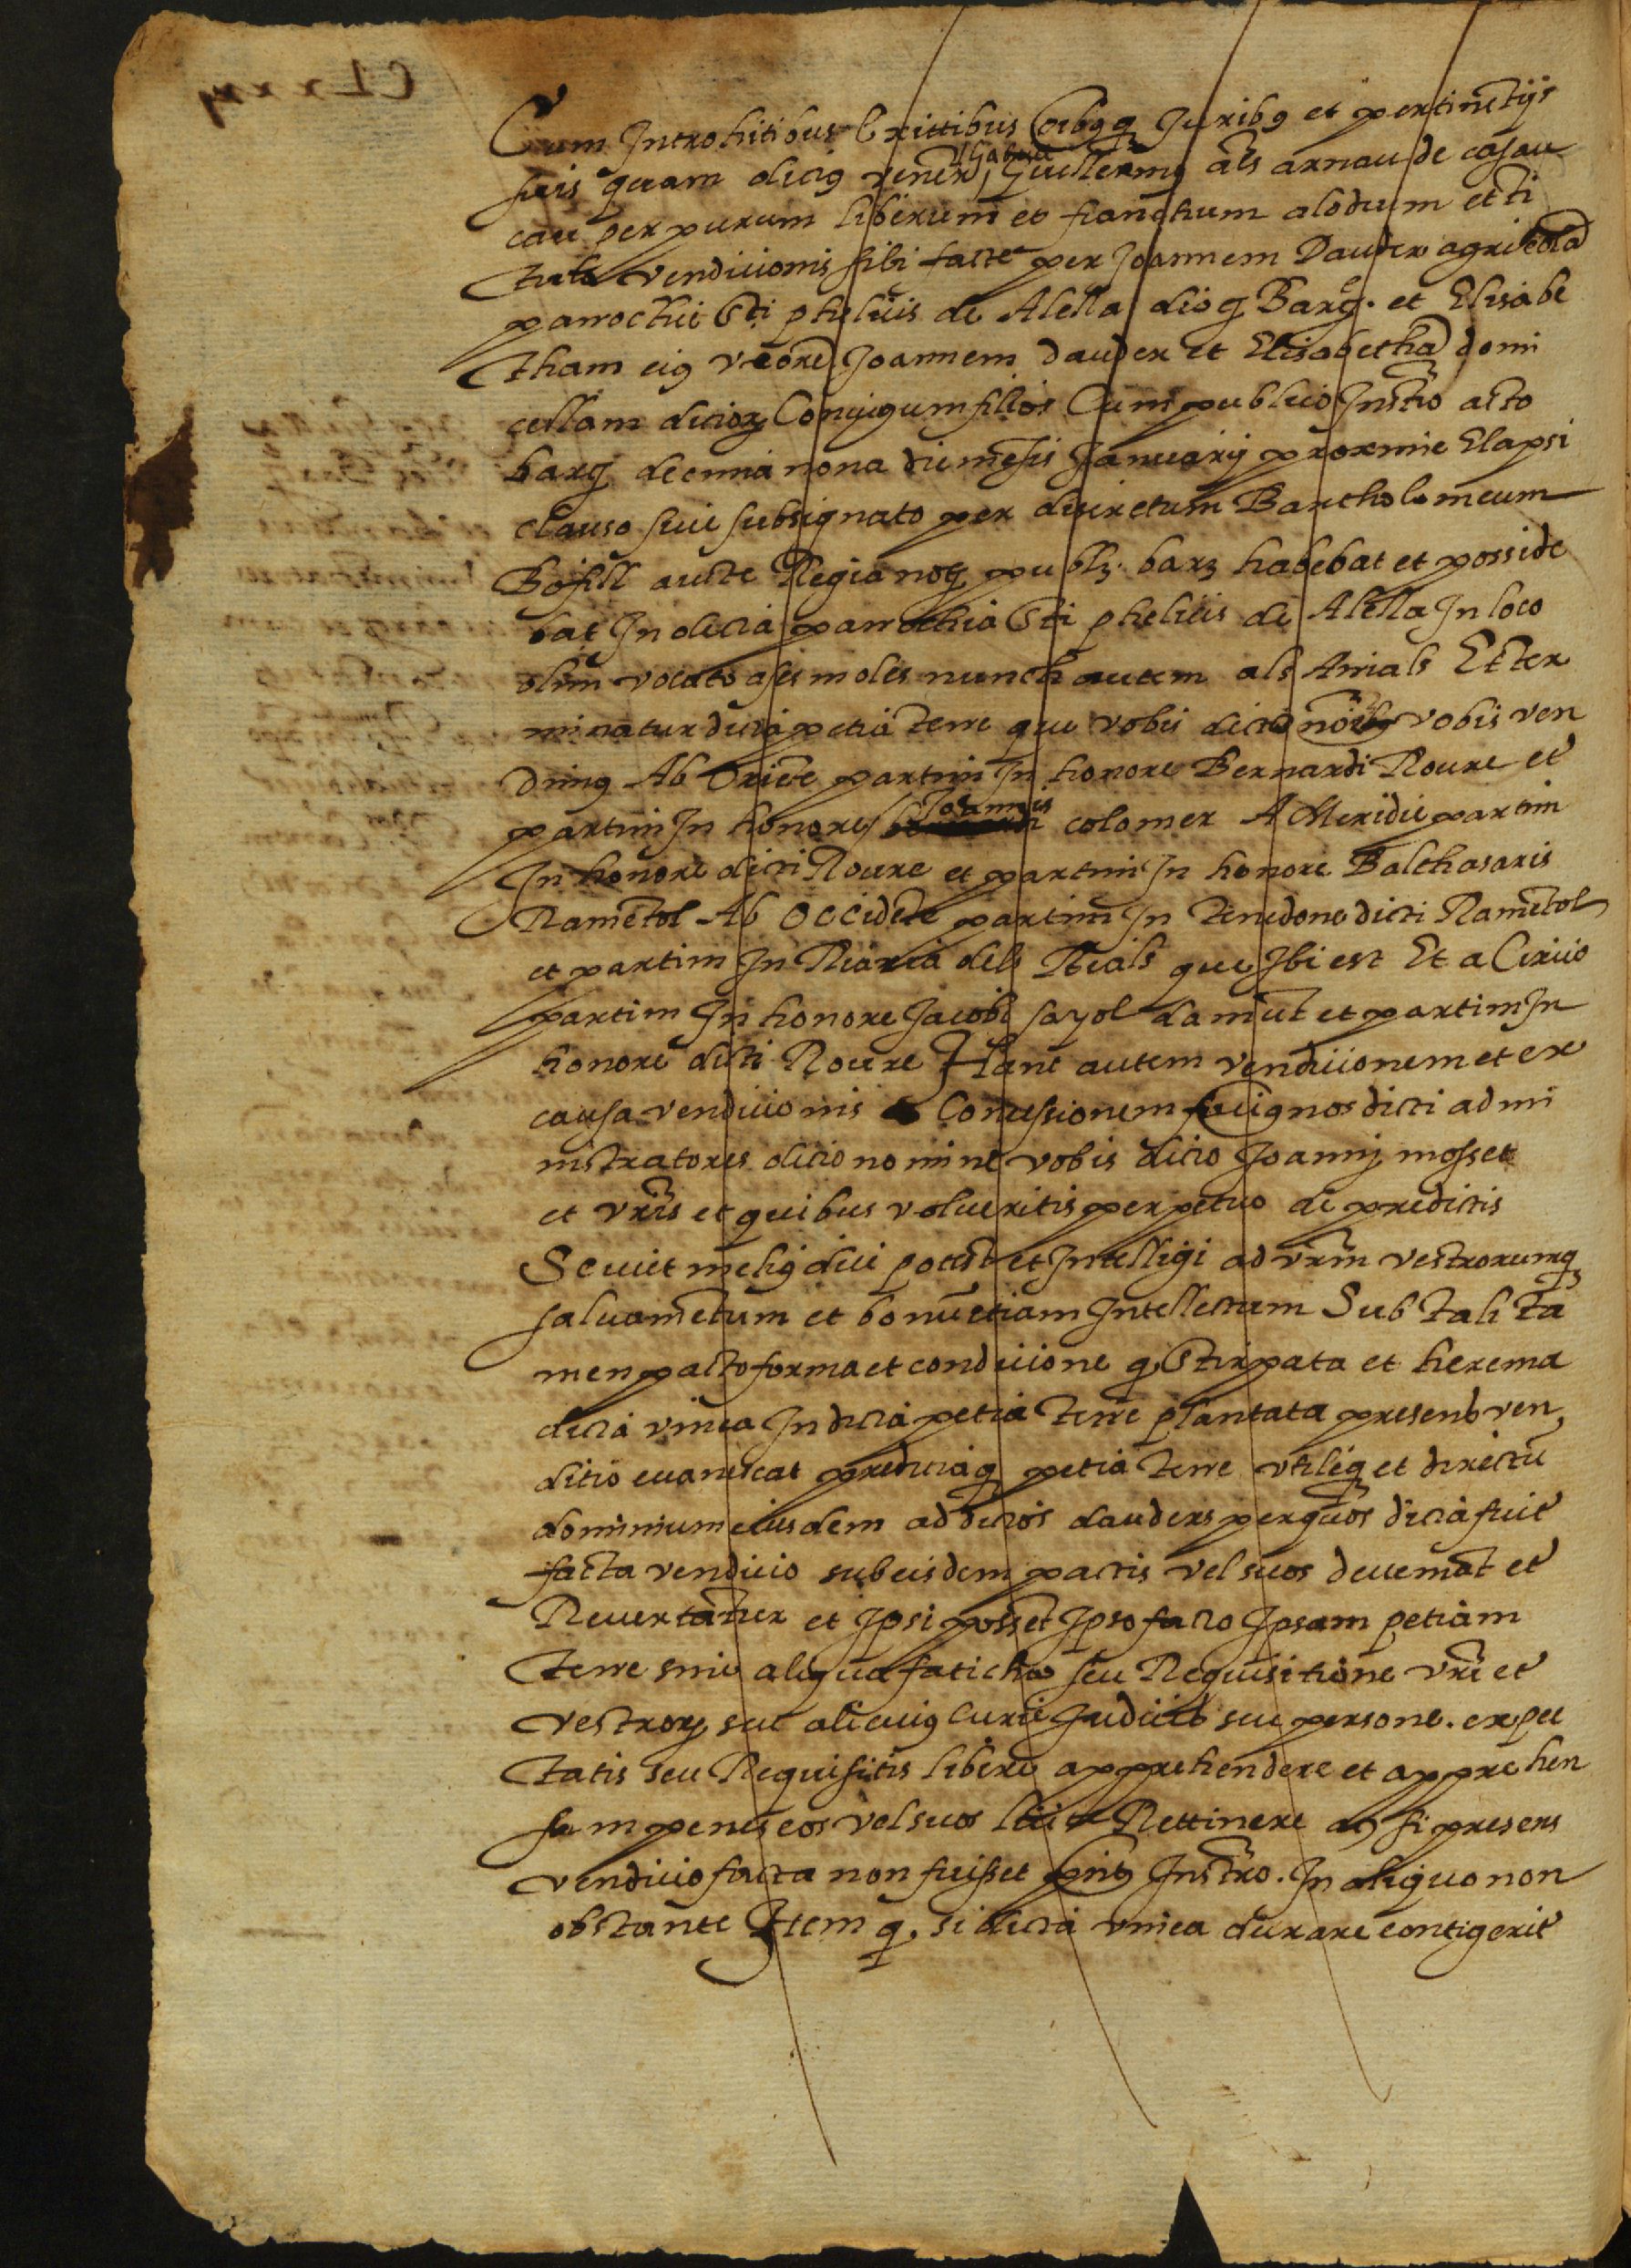 Cum Introhitibus Exittibus oibqz Juribs et pertinetijs
suis quam dictus vener Guillermus als arnau de casau
cau per purum liberum et franchum alodum et ti
tulo vendicionis sibi facte per Joannem Dauder agricola
parrochie Sti phelicis de Alella dioc Barc. et Elisabe
tham eius vxore Joannem dauder et Elisabetha domi
cellam dictor Conjugum filios Cum publico Instro acto
barc decima nona die mesis Januarij proxime Elapsi
clauso sive subsignato per discretum Bartholomeum
Bofill aucte Regia not publ. barc habebat et posside
bat In dicta parrochia Sti phelicis de Alella In loco
olim vocato ases moles nunch autem als Arrials Et ter
minatur dicta petia terre que vobis dictis noibz vobis ven
dimus Ab Oriete partim In honore Bernardi Roure et
partim In honore Joannis colomer A Meridie partim
In honore dicti Roure et partim In honore Balthasaris
Rametol Ab Occidete partim In tenedone dicti Rametol
et partim In Riaria dels Reials que Ibi est Et a Circio
partim In honore Jacobi sayol damut et partim In
honore dicti Roure Hanc autem vendicionem et ex
causa vendicionis Concessionem facimus nos dicti admi
nistratores dicto nomine vobis dicto Joanni mosset
et vris et quibus volueritis perpetuo de predictis
Sicut melius dici potest et Intelligi ad vrm vestrorumqz
salvametum et bonu etiam Intellectum Sub tali ta
men pacto forma et condicione q stirpata et herema
dicta vinea In dicta petia terre plantata presens ven
ditio evanescat predictaqz petia terre vtileqz et directu
dominium eiusdem ad dictos dauders per quos dicta fuit
facta vendicio sub eisdem pactis vel suos deveniat et
Revertatur et Ipsi posset Ipso facto Ipsam petiam
terre sine aliqua faticha seu Requisitione vri et
vestror seu alicuius curie Judicis seu persone. expec
tatis seu Requisitis libere apprehendere et apprehen
sam penes eos vel suos licite Rettinere ac si presens
vendicio facta non fuisset pnti Instro. In aliquo non
obstante Item q. si dicta vinea durare contigerit